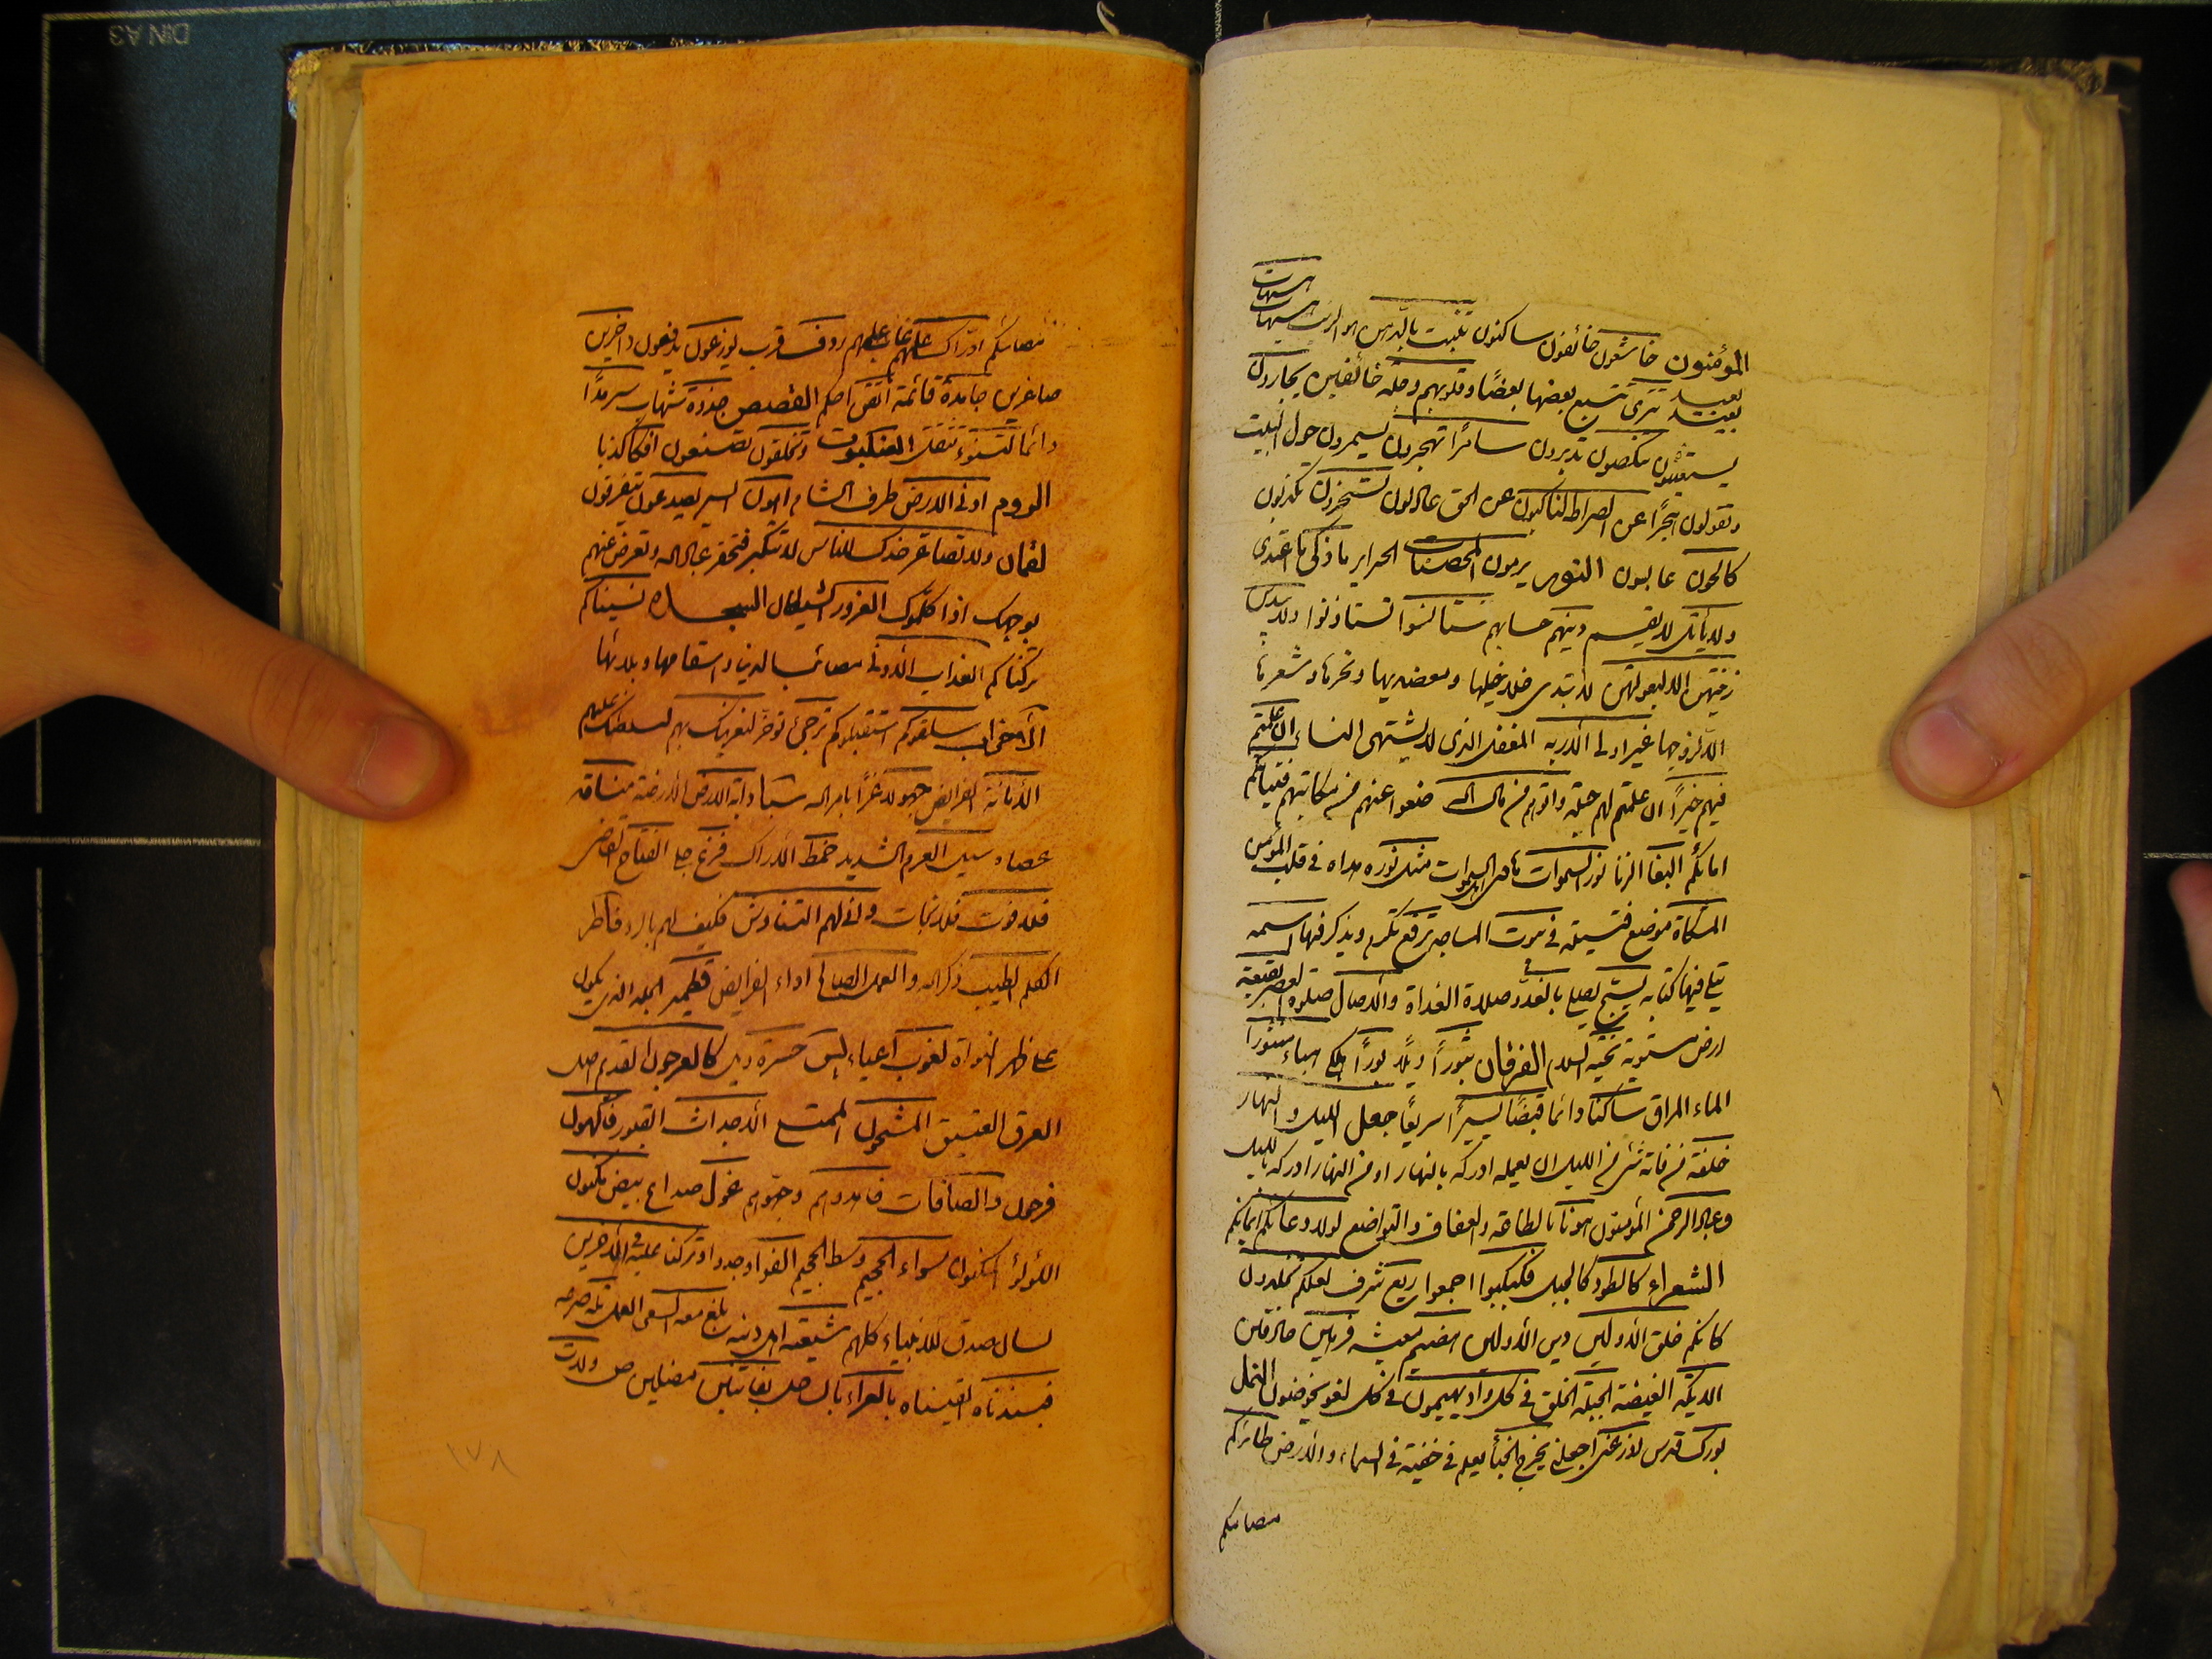 هيهات هيهات
المؤمنون خاشعون خائفون ساكنون تنبت بالدهن هو الزيت
بعيد بعيد تترى تتبع بعضها بعضًا وقلوبهم وجلة خائفين يجارون
يستغيثون تنكصون تدبرون سامرًا تهجرون تسمرون حول البيت
وتقولون هجرًا عن الصراط لناكبون عن الحق عادلون تسخرون تكذبون
كالحون عابسون النور يرمون المحصنات الحراير ما زكى ما اهتدى
ولا يأتل لا يقسم دينهم حسابهم تستانسوا تستاذنوا ولا يبدين
زينتهن الا لبعولتهن لا تبدى خلاخلها ومعضديها ونحرها وشعرها
الا لزوجها غير اولى الاربة المغفل الذى لا يشتهى النساء ان علمتم
فيهم خيرًا ان علمتم لهم حيلة واتوهم من مال الله ضعوا عنهم من مكاتبتهم فتياتكم
امائكم البغا الزنا نور السموات هادى السموات مثل نوره هداه فى قلب المؤمن
المشكاة موضع فتيلة فى بيوت المساجد ترفع تكرم ويذكر فيها اسمه
يتلى فيها كتابه يسبح يصلى بالغدو صلاة الغداة والاصال صلوة العصر بقيعة
ارض مستوية تحية السلام الفرقان ثبورًا ويلا بورًا هلكى هباء منثورًا
الماء المراق ساكنا دائما قبضًا يسيرًا سريعًا جعل الليل والنهار
خلفة من فاته شئ من الليل ان يعمله ادركه بالنهار او من النهار ادركه بالليل
وعباد الرحمن المؤمنون هونا بالطاعة والعفاف والتواضع لولا دعاؤكم ايمانكم
الشعراء كالطود كالجبل فكبكبوا اجمعوا ريع شرف لعلكم تخلدون
كانكم خلق الاولين دين الاولين هضيم معشبة فرهين حاذقين
الايكة الغيضة الجبلة الخلق فى كل واد يهيمون فى كل لغو يخوضون النمل
بورك قدس اوزعنى اجعلنى يخرج الخبأ يعلم كل خفية فى السماء والارض طائركم
مصائبكم
مصائبكم ادارك علمهم غاب علمهم ردف قرب يوزعون يدفعون داخرين
صاغرين جامدة قائمة اتقن احكم القصص جذوة شهاب سرمدًا
دائما لتنوء تثقل العنكبوت وتخلقون تصنعون افكا كذبا
الروم ادنى الارض طرف الشام اهون ايسر يصدعون يتفرقون
لقمان ولا تصاعر خدك للناس لا تتكبر فتحقر عباد الله وتعرض عنهم
بوجهك اذا كلموك الغرور الشيطان السجدة نسيناكم
تركناكم العذاب الادنى مصائب الدنيا واسقامها وبلائها
الاحزاب سلقوكم استقبلوكم ترجئ توخر لنغرينك بهم لنسلطنك عليهم
الامانة الفرايض جهولا غرًا بامر الله سبأ دابة الارض الارضة منساته
عصاه سيل العرم الشديد خمط الاراك فزع جلى الفتاح القاضى
فلا فوت فلا نجات وانى لهم التناوش فكيف لهم بالرد فاطر
الكلم الطيب ذكر الله والعمل الصالح اداء الفرايض قطمير الجلد الذى يكون
على ظهر النواة لغوب اعياء يس حسرة ويل كالعرجون القديم اصل
العرق العتيق المشحون الممتلئ الاجداث القبور فاكهون
فرحون والصافات فاهدوهم وجهوهم غول صداع بيض مكنون
اللؤلؤ المكنون سواء الجحيم وسط الجحيم الفوا وجدوا وتركنا عليه فى الاخرين
لسان صدق للانبياء كلهم شيعته اهل دينه بلغ معه السعى العمل تله صرعه
فنبذناه القيناه بالعراء بالساحل بفاتنين مضلين ص ولات
١٧٨
DIN A3